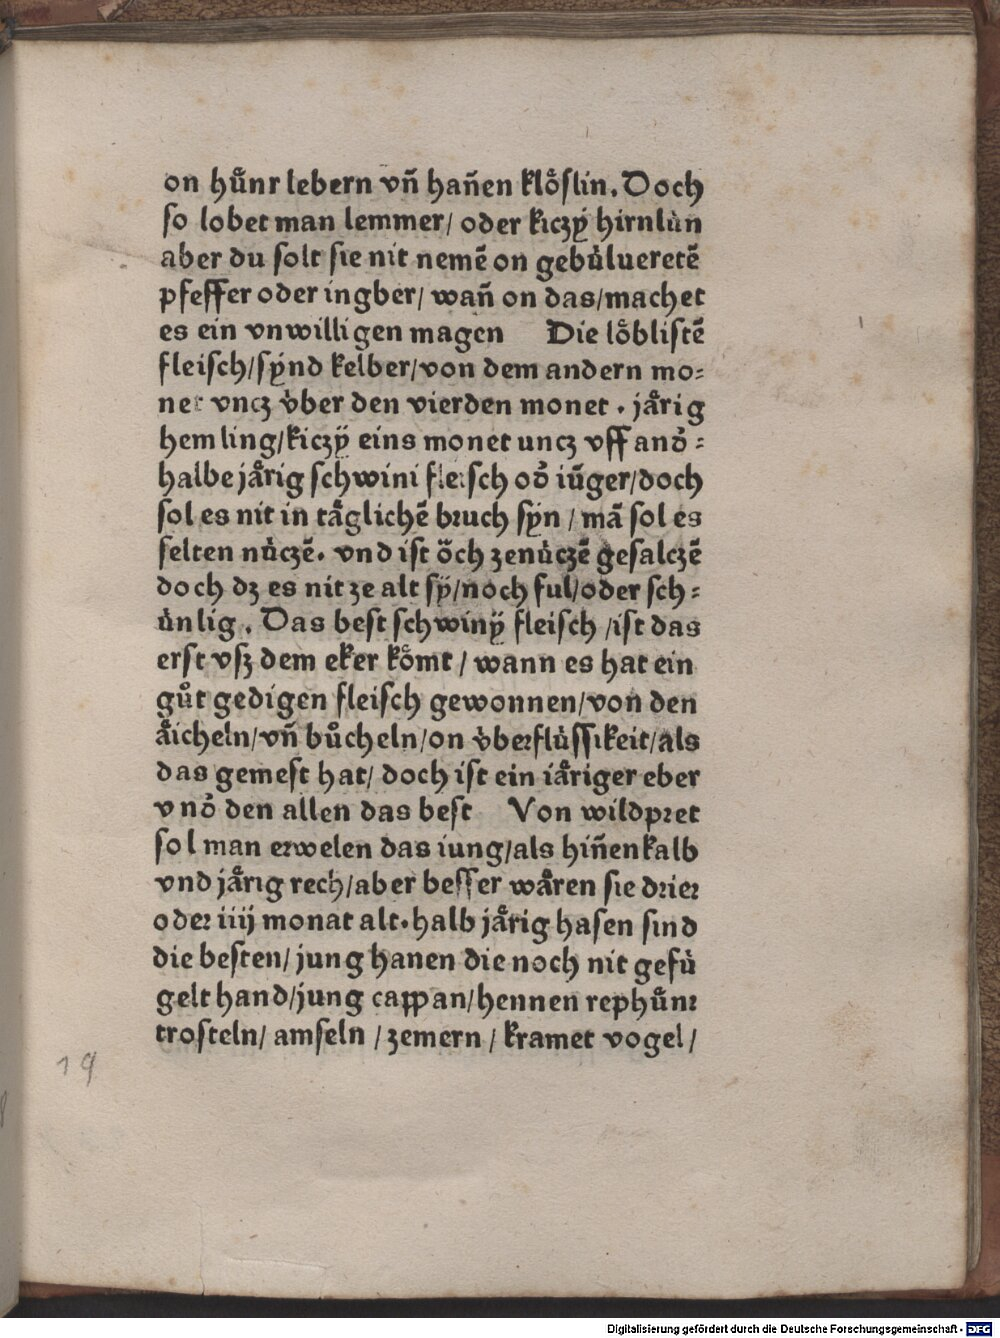 on huͤnr lebern vn̄ han̄en kloͤſlin. Doch
ſo lobet man lemmer/ oder kiczẏ hirnlün
aber du ſolt ſie nit nemē on gebülueretē
pfeffer oder ingber/ wan̄ on das/machet
es ein vnwilligen magen Die loͤbliſtē
fleiſch/ſẏnd kelber/von dem andern mo⸗
net vncz v̈ber den vierden monet . jaͤrig
hemling/kiczÿ eins monet uncz vff andᷣ⸗
halbe jaͤrig ſchwini fleiſch odᷣ iūger/doch
ſol es nit in taͤglichē bꝛuch ſẏn / mā ſol es
ſelten nüczē. vnd iſt oͤch zenüczē geſalczē
doch dz es nit ze alt ſÿ/noch ful/oder ſch⸗
ünlig. Das beſt ſchwinÿ fleiſch /iſt das
erſt vſz dem eker koͤmt / wann es hat ein
guͦt gedigen fleiſch gewonnen/von den
aͤicheln/vn̄ buͦcheln/on v̈beꝛflüſſikeit/als
das gemeſt hat/ doch iſt ein iaͤriger eber
vndᷣ den allen das beſt Von wildpꝛet
ſol man eꝛwelen das iung/als hin̄enkalb
vnd jaͤrig rech/aber beſſer waͤren ſie dꝛieꝛ
odeꝛ iiij monat alt.halb jaͤrig haſen ſind
die beſten/ jung hanen die noch nit gefü
gelt hand/jung cappan/hennen rephuͤnꝛ
troſteln/ amſeln / zemern / kramet vogel /
19
Digitalisierung gefördert durch die Deutsche Forschungsgemeinschaft - DFG